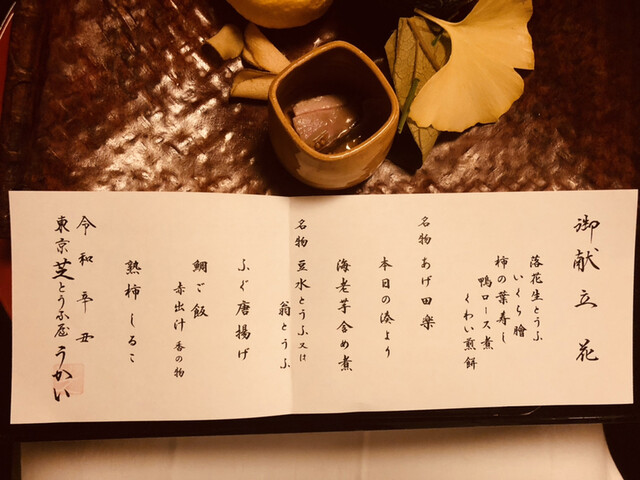 御献立 花
落花生とうふ
いくら膾
柿の葉寿し
鴨ロース煮
くわい煎餅
名物 あげ田楽
本日の湊より
海老芋含め煮
名物 豆水とうふ 又は
翁とうふ
ふぐ唐揚げ
鯛ご飯
赤出汁 香の物
熟柿しるこ
令和辛丑
東京 芝 とうふ屋 うかい